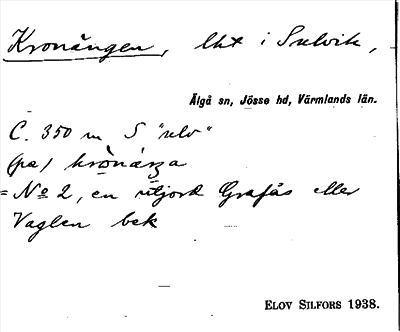 Kronängen, lht i Sulvik,
Älgå sn, Jösse hd, Värmlands län.
C. 350 m S "ulv"
(pa) krònä̀ŋa
= No 2, en utjord Grafås eller
Vaglen bek
ELOV SILFORS 1938.